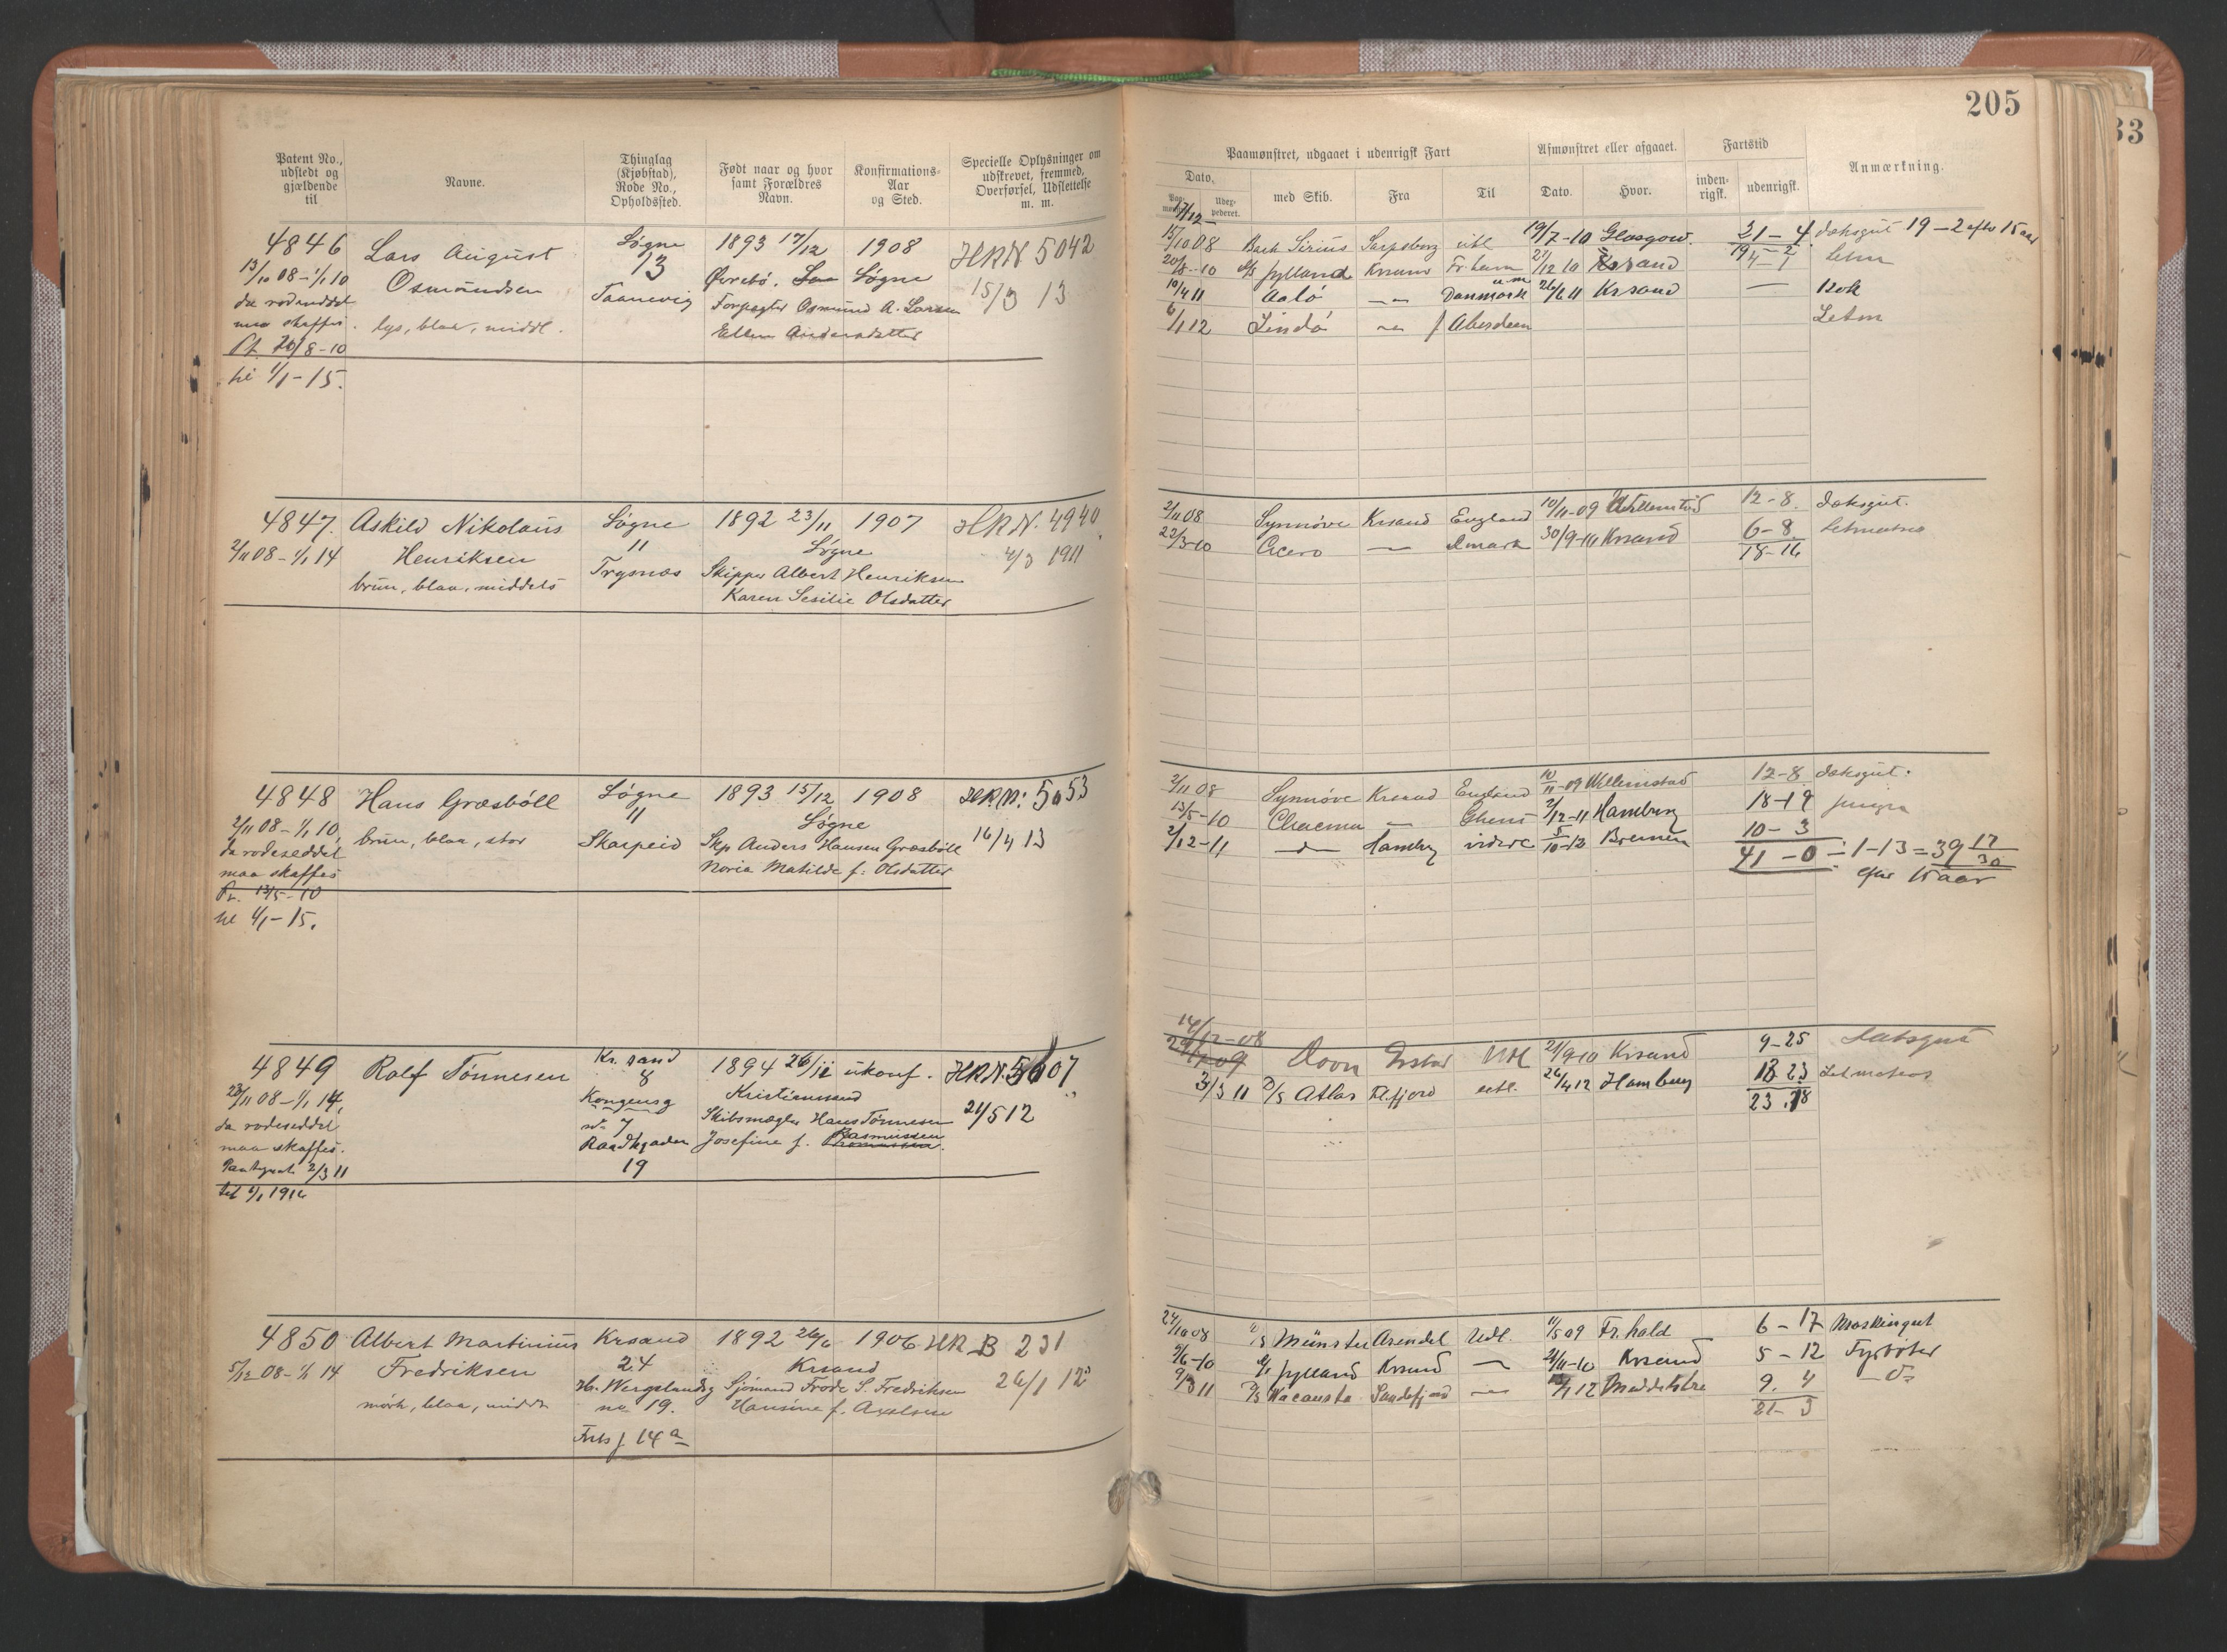 205
33
Patent No., udstedt og gjældende til
Navne.
Thinglag (Kjøbstad), Rode No., Opholdssted.
Født naar og hvor samt Forældres Navn.
Konfirmations-Aar og Sted.
Specielle Oplysninger om udskrevet, fremmed, Overførsel, Udslettelse m. m.
Paamønstret, udgaaet i udenrigsk Fart
Afmønstret eller afgaaet.
Fartstid
Anmærkning.
Dato.
med Skib.
Fra
Til
Dato.
Hvor.
inden-rigsk.
udenrigsk.
4846 Lars August Søgne 1893 17/12 1908 HRN 5042
13/10 08 - 1/1 10 Osmundsen 13 Øvrebö. Søgne 15/3 13
da rodeseddel Taanevig Forpagter Osmund A. Larsen
maa skaffes. lys, blaa, middl. Ellen Andersdatter
Pt. 20/8-10
til 1/1-15.
17/12
15/10 08 Bark Sirius Sarpsborg utl 19/7-10 Glasgow. 21-4 Dæksgut 19-2 efter 15 aar
20/8-10 Jylland Krsand Fr.havn 27/12 10 Krsand 4-1 Letm
10/4 11 Aalö Danmark 26/6 11 Krsand Kok
6/1 12 Lindö Aberdeen Letm
4847. Askild Nikolaus Søgne 1892 23/11 1907 HRN. 4940
2/11 08 - 1/1 14 Henriksen 11 Søgne 4/3 1911
brun, blaa, middels Trysnæs Skipper Albert Henriksen
Karen Sesilie Olsdatter
2/11 08 Synnøve Krsand England 10/11-09 Willemstad 12-8. Dæksgut.
22/3-10 Cicero Dmark 30/9-10 Krsand 6-8 Letmatros
18-16
4848 Hans Græsböll Søgne 1893 15/12 1908 HRN: 5053
2/11 08 - 1/1 10, brun, blaa, stor 11 Søgne 16/4 13
da rodeseddel Skarpeid Skp Anders Hansen Græsböll
maa skaffes Maria Matilde f. Olsdatter
Pt. 13/5-10
til 1/1-15.
2/11 08 Synnøve Krsand England 10/11-09 Willemstad 12-8 Dæksgut.
13/5-10 Chacma Ghent 2/12-11 Hamburg 18-19 jungm
2/12-11 Hamburg videre 5/10-12 Bremen 10-3
41-0 ÷ 1-13 = 39 17/30
efter 15 aar
4849 Rolf Tønnesen Kr.sand 1894 26/11 ukonf. HRN. 5007
23/11 08 - 1/1 14, 8 Kristianssand 21/5 12
da rodeseddel Kongensg Skibsmægler Hans Tønnesen
maa skaffes. no 7 Josefine f. Rasmussen
Raadhgaden
Patent 2/3 11 19
til 1/1 1916
14/12-08
Doon 21/9-10 Krsand 9-25 Dæksgut
3/3 11 D/S Atlas Fl.fjord utl. 26/4 12 Hamburg Letmatros
23.18
4850 Albert Martinius Krsand 1892 26/6 1906 HR B 231
5/12 08 - 1/1 14 Fredriksen 24 Krsand 26/1 12
H. Wergelandsg Sjömand Frode S. Fredriksen
mørk, blaa, middl no 19. Hansine f. Axelsen
14 a
24/10 08 D/S Münster Arendal Udl. 11/5 09 Fr.hald 6-17 Maskingut
2/6-10 Jylland Krsand 21/11-10 Krsand 5-12 Fyrböter
9/3 11 D/S Wacousta Sandefjord 1 12 9. 4
21-3